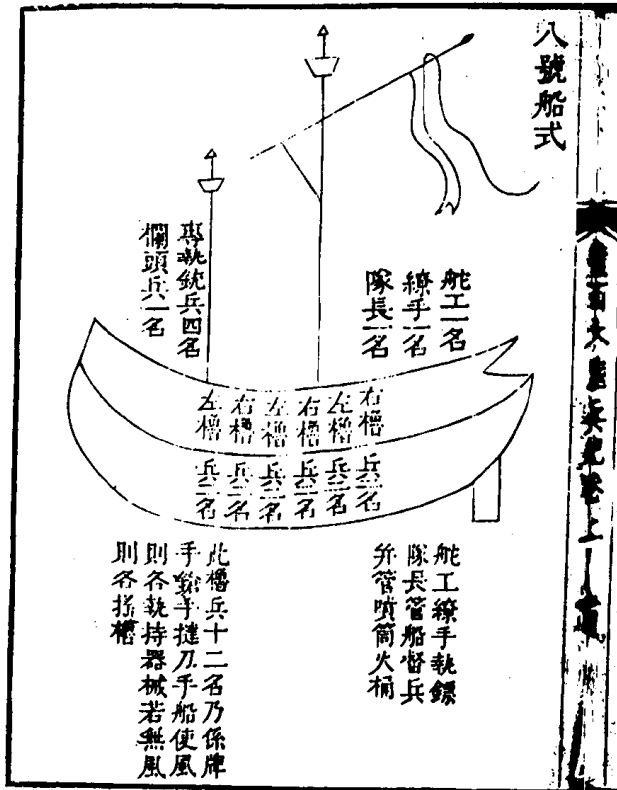 八號船式
舵工一名
繚手一名
隊長一名
專執銃兵四名
欄頭兵一名
右櫓兵二名
左櫓兵二名
右櫓兵二名
左櫓兵二名
右櫓兵二名
左櫓兵二名
舵工繚手執鏢
隊長管船督兵
弁管噴筒火桶
此櫓兵十二名乃係牌
手鎗手撻刀手船使風
則各執持器械若無風
則各搖櫓
卷上